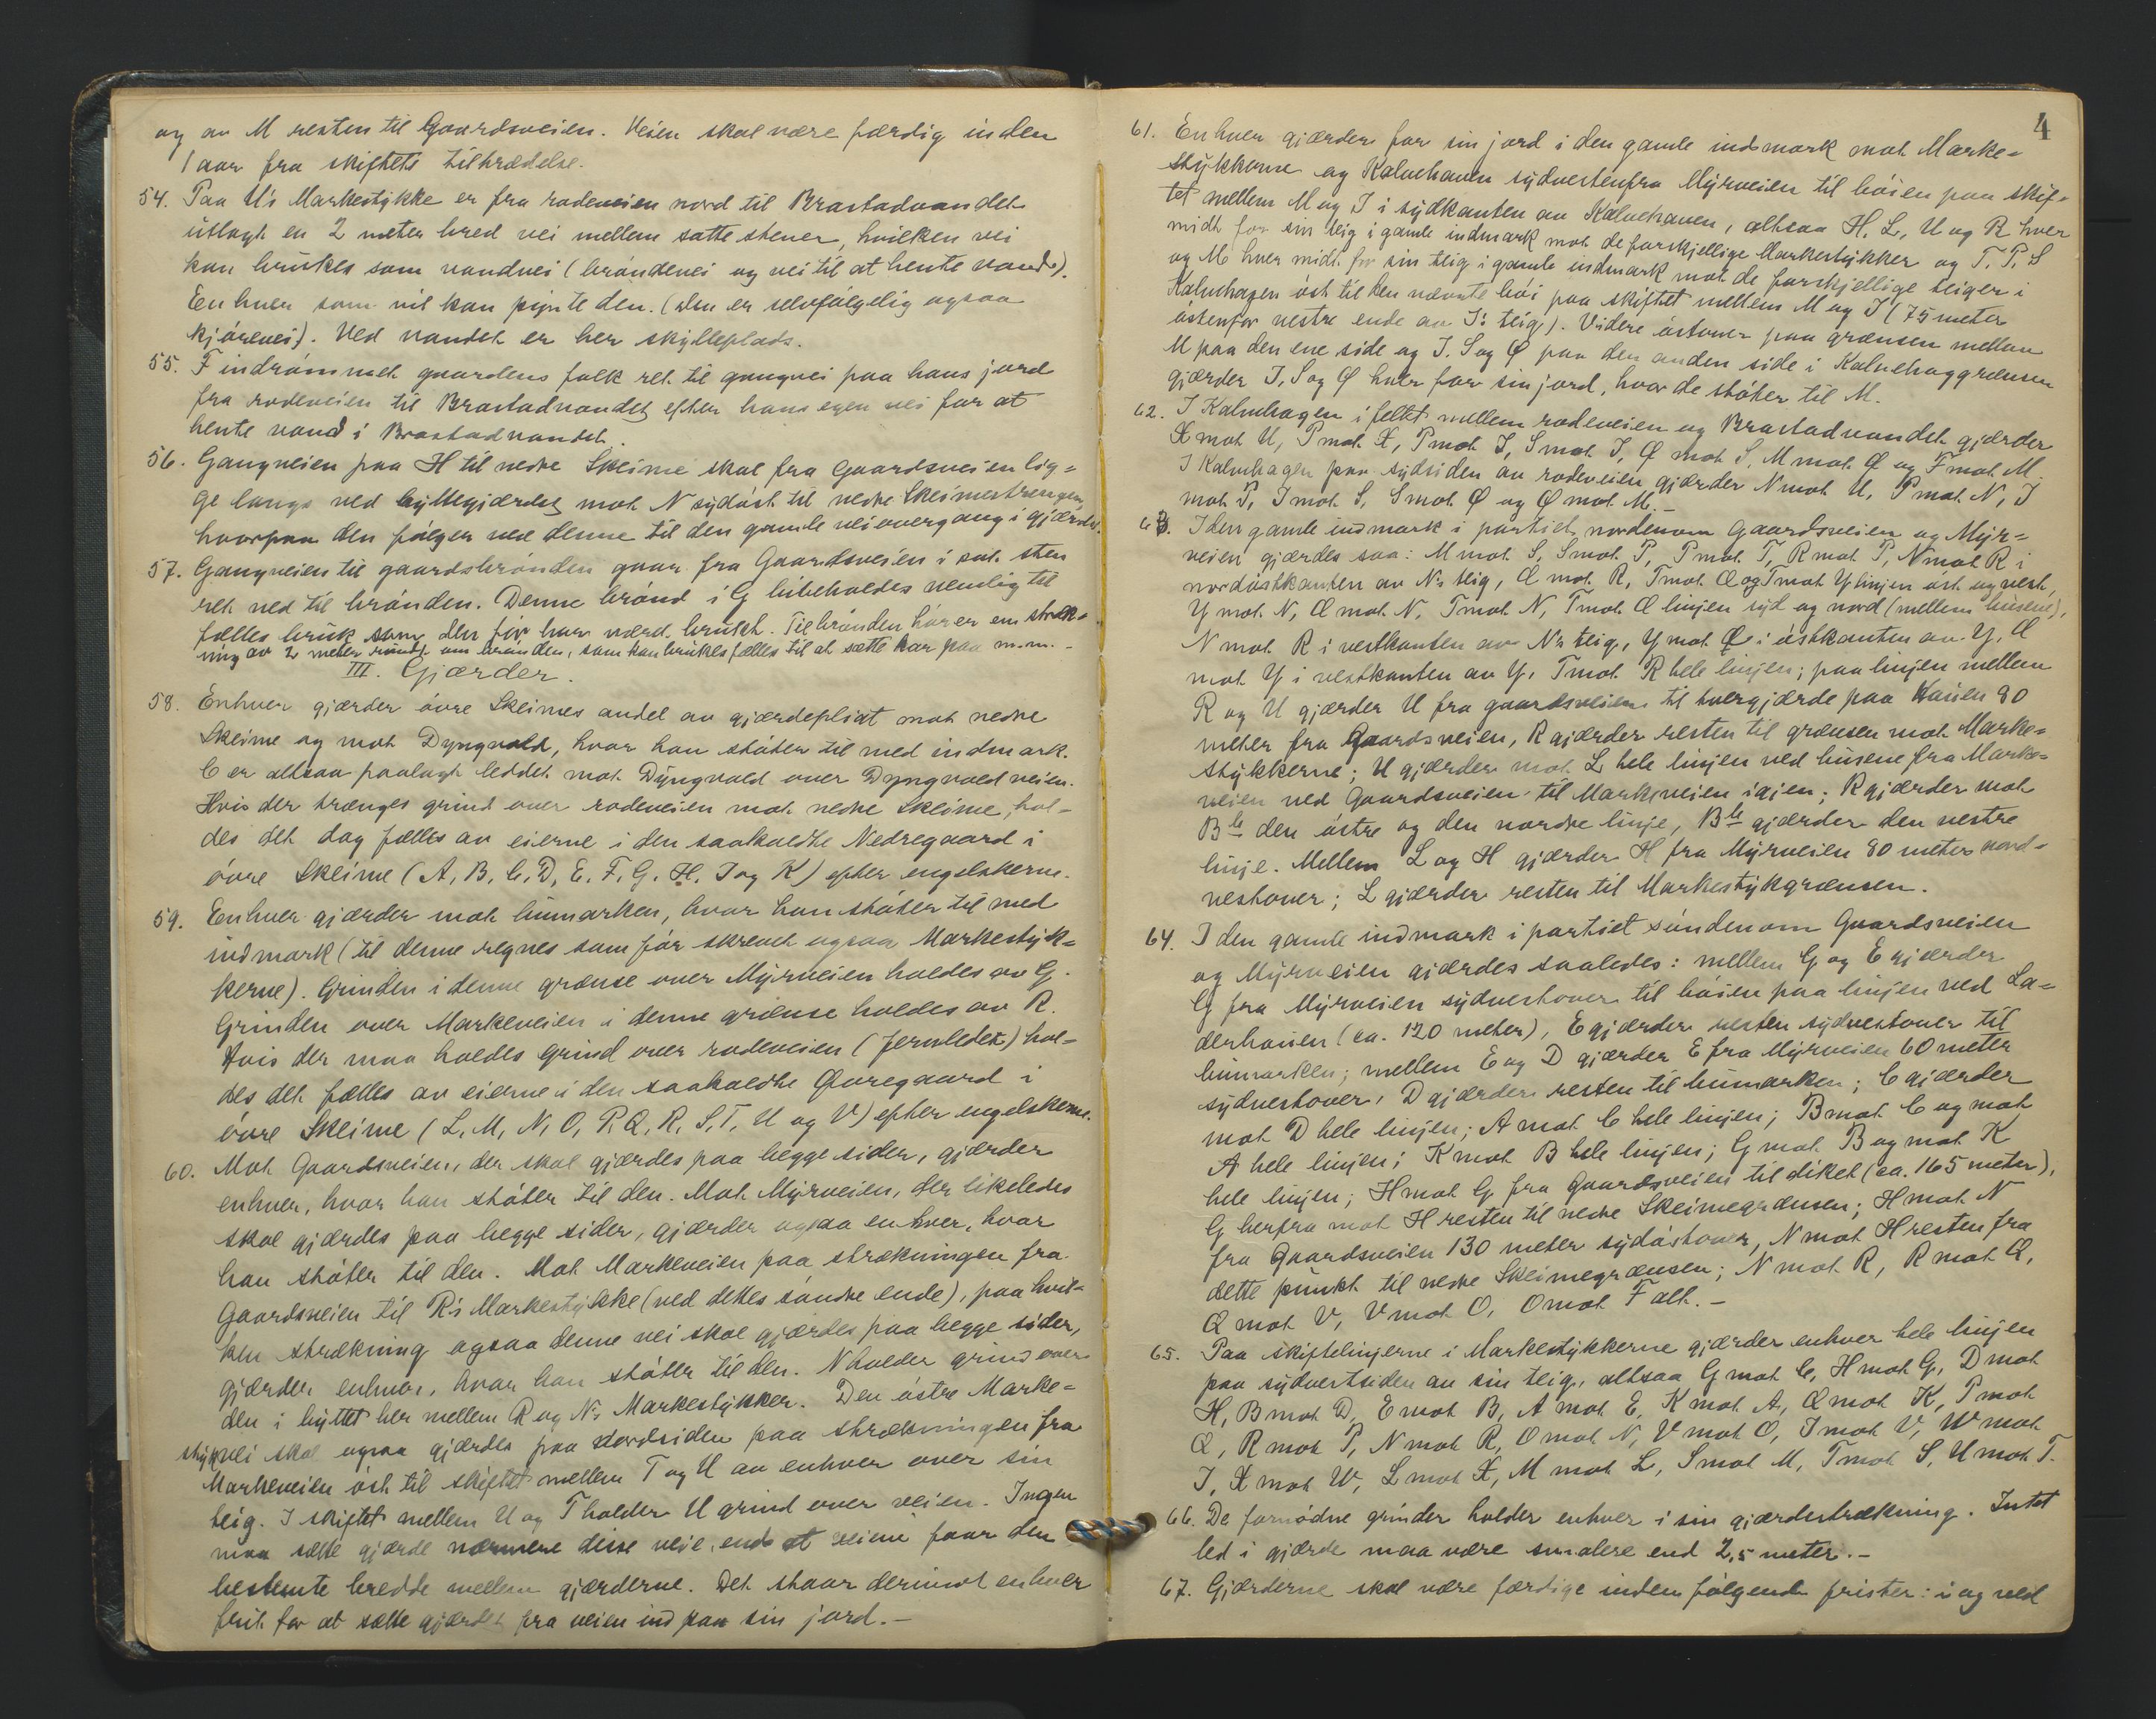 og av M resten til Gaardsveien. Veien skal være færdig inden
1 aar fra skiftets tiltrædelse.
54. Paa U's Markestykke er fra rodeveien nord til Brastadvandet
utlagt en 2 meter bred vei mellem satte stener, hvilken vei
kan brukes som vandvei (brøndevei og vei til at hente vand).
Enhver som vil kan pynte den. (den er selvfølgelig ogsaa
kjørevei). Ved vandet er her skylleplads.
55. F indrømmet gaardens folk ret til gangvei paa hans jord
fra rodeveien til Brastadvandet efter hans egen vei for at
hente vand i Brastadvandet.
56. Gangveien paa H til nedre Skeime skal fra Gaardsveien lig-
ge langs ved byttegjærdet mot N sydøst til nedre Skeimestrengen,
hvorpaa den følger ved denne til den gamle veiovergang i gjærdet.
57. Gangveien til gaardsbrønden gaar fra Gaardsveien i sat. sten
ret ned til brønden. Denne brønd i G bibeholdes nemlig til
fælles bruk som den før har været brukt. Til brønden hører en stræk-
ning av 2 meter rundt om brønden, som kan brukes fælles til at sætte kar paa m.m. -
III. Gjærder.
58. Enhver gjærder øvre Skeimes andel av gjærdepligt mot nedre
Skeime og mot Dyngvold, hvor han støter til med indmark.
C er altsaa paalagt leddet mot Dyngvold over Dyngvoldveien.
Hvis der trænges grind over rodeveien mot nedre Skeime, hol-
des det dog fælles av eierne i den saakaldte Nedregaard i
øvre Skeime (A, B, C, D, E, F, G, H, J og K) efter engelskerne.
59. Enhver gjærder mot bumarken, hvor han støter til med
indmark (til denne regnes som før skrevet ogsaa Markestyk-
kerne). Grinden i denne grænse over Myrveien holdes av G.
Grinden over Markeveien i denne grænse holdes av R.
Hvis der maa holdes grind over rodeveien (Jernledet) hol-
des det fælles av eierne i den saakaldte Øvregaard i
øvre Skeime (L, M, N, O, P, Q, R, S, T, U og V) efter engelskerne.
60. Mot Gaardsveien, der skal gjærdes paa begge sider, gjærder
enhver, hvor han støter til den. Mot Myrveien, der likeledes
skal gjærdes paa begge sider, gjærder ogsaa enhver, hvor
han støter til den. Mot Markeveien paa strækningen fra
Gaardsveien til R's Markestykke (ved dettes søndre ende), paa hvil-
ken strækning ogsaa denne vei skal gjærdes paa begge sider,
gjærder enhver, hvor han støter til den. N holder grind over
den i byttet her mellem R og N's Markestykker. Den østre Marke-
stykvei skal ogsaa gjærdes paa nordsiden paa strækningen fra
Markeveien øst til skiftet mellem T og U av enhver over sin
teig. I skiftet mellem U og T holder U grind over veien. Ingen
maa sætte gjærde nærmere disse veie, end at veiene faar den
bestemte bredde mellem gjærderne. Det staar derimot enhver
frit for at sætte gjærdet fra veien ind paa sin jord. -
4
61. Enhver gjærder for sin jord i den gamle indmark mot Marke-
stykkerne og Kalvehaven sydvestenfra Myrveien til høien paa skif-
tet mellem M og J i sydkanten av Kalvehaven, altsaa H, L, U og R hver
midt for sin teig i gamle indmark mot de forskjellige Markestykker og T, P, S
og M hver midt for sin teig i gamle indmark mot de forskjellige teiger i
Kalvehagen øst til den nævnte høi paa skiftet mellem M og J (75 meter
østenfor vestre ende av J's teig). Videre østover paa grænsen mellem
M paa den ene side og J, S og Ø paa den anden side i Kalvehaggrænsen
gjærder J, S og Ø hver for sin jord, hvor de støter til M.
62. I Kalvehagen i feltet mellem rodeveien og Brastadvandet gjærder
X mot U, P mot X, P mot J, S mot J, Ø mot S, M mot Ø og F mot M.
I Kalvehagen paa sydsiden av rodeveien gjærder N mot U, P mot N, J
mot P, J mot S, S mot Ø og Ø mot M. -
63. I den gamle indmark i partiet nordenom Gaardsveien og Myr-
veien gjærdes saa: M mot S, S mot P, P mot T, R mot P, N mot R i
nordøstkanten av N's teig, Q mot R, T mot Q og T mot Y linjen øst og vest,
Y mot N, Q mot N, T mot N, T mot Q linjen syd og nord (mellem husene),
N mot R i vestkanten av N's teig, Y mot Q i østkanten av Y, Q
mot Y i vestkanten av Y, T mot R hele linjen; paa linjen mellem
R og U gjærder U fra gaardsveien til tvergjærde paa Hauen 80
meter fra Gaardsveien, R gjærder resten til grænsen mot Marke-
stykkerne; U gjærder mot L hele linjen ved husene fra Marke-
veien ved Gaardsveien til Markeveien igjen; R gjærder mot
B le den østre og den nordre linje, B le gjærder den vestre
linje. Mellem L og H gjærder H fra Myrveien 80 meter nord-
vestover; L gjærder resten til Markestykgrænsen.
64. I den gamle indmark i partiet søndenom Gaardsveien
og Myrveien gjærdes saaledes: mellem G og E gjærder
G fra Myrveien sydvestover til høien paa linjen ved La-
derhauen (ca. 120 meter), E gjærder resten sydvestover til
bumarken; mellem E og D gjærder E fra Myrveien 60 meter
sydvestover, D gjærder resten til bumarken; C gjærder
mot D hele linjen; A mot C hele linjen; B mot C og mot
A hele linjen; K mot B hele linjen; G mot B og mot K
hele linjen; H mot G fra Gaardsveien til diket (ca. 165 meter),
G herfra mot H resten til nedre Skeimegrænsen; H mot N
fra Gaardsveien 130 meter sydøstover, N mot H resten fra
dette punkt til nedre Skeimegrænsen; N mot R, R mot Q,
Q mot V, V mot O, O mot F alt. -
65. Paa skiftelinjerne i Markestykkerne gjærder enhver hele linjen
paa sydvestsiden av sin teig, altsaa G mot C, H mot G, D mot
H, B mot D, E mot B, A mot E, K mot A, Q mot K, P mot
Q, R mot P, N mot R, O mot N, V mot O, J mot V, W mot
J, X mot W, L mot X, M mot L, S mot M, T mot S, U mot T.
66. De fornødne grinder holder enhver i sin gjærdestrækning. Intet
led i gjærde maa være smalere end 2,5 meter. -
67. Gjærderne skal være færdige inden følgende frister: i og ved